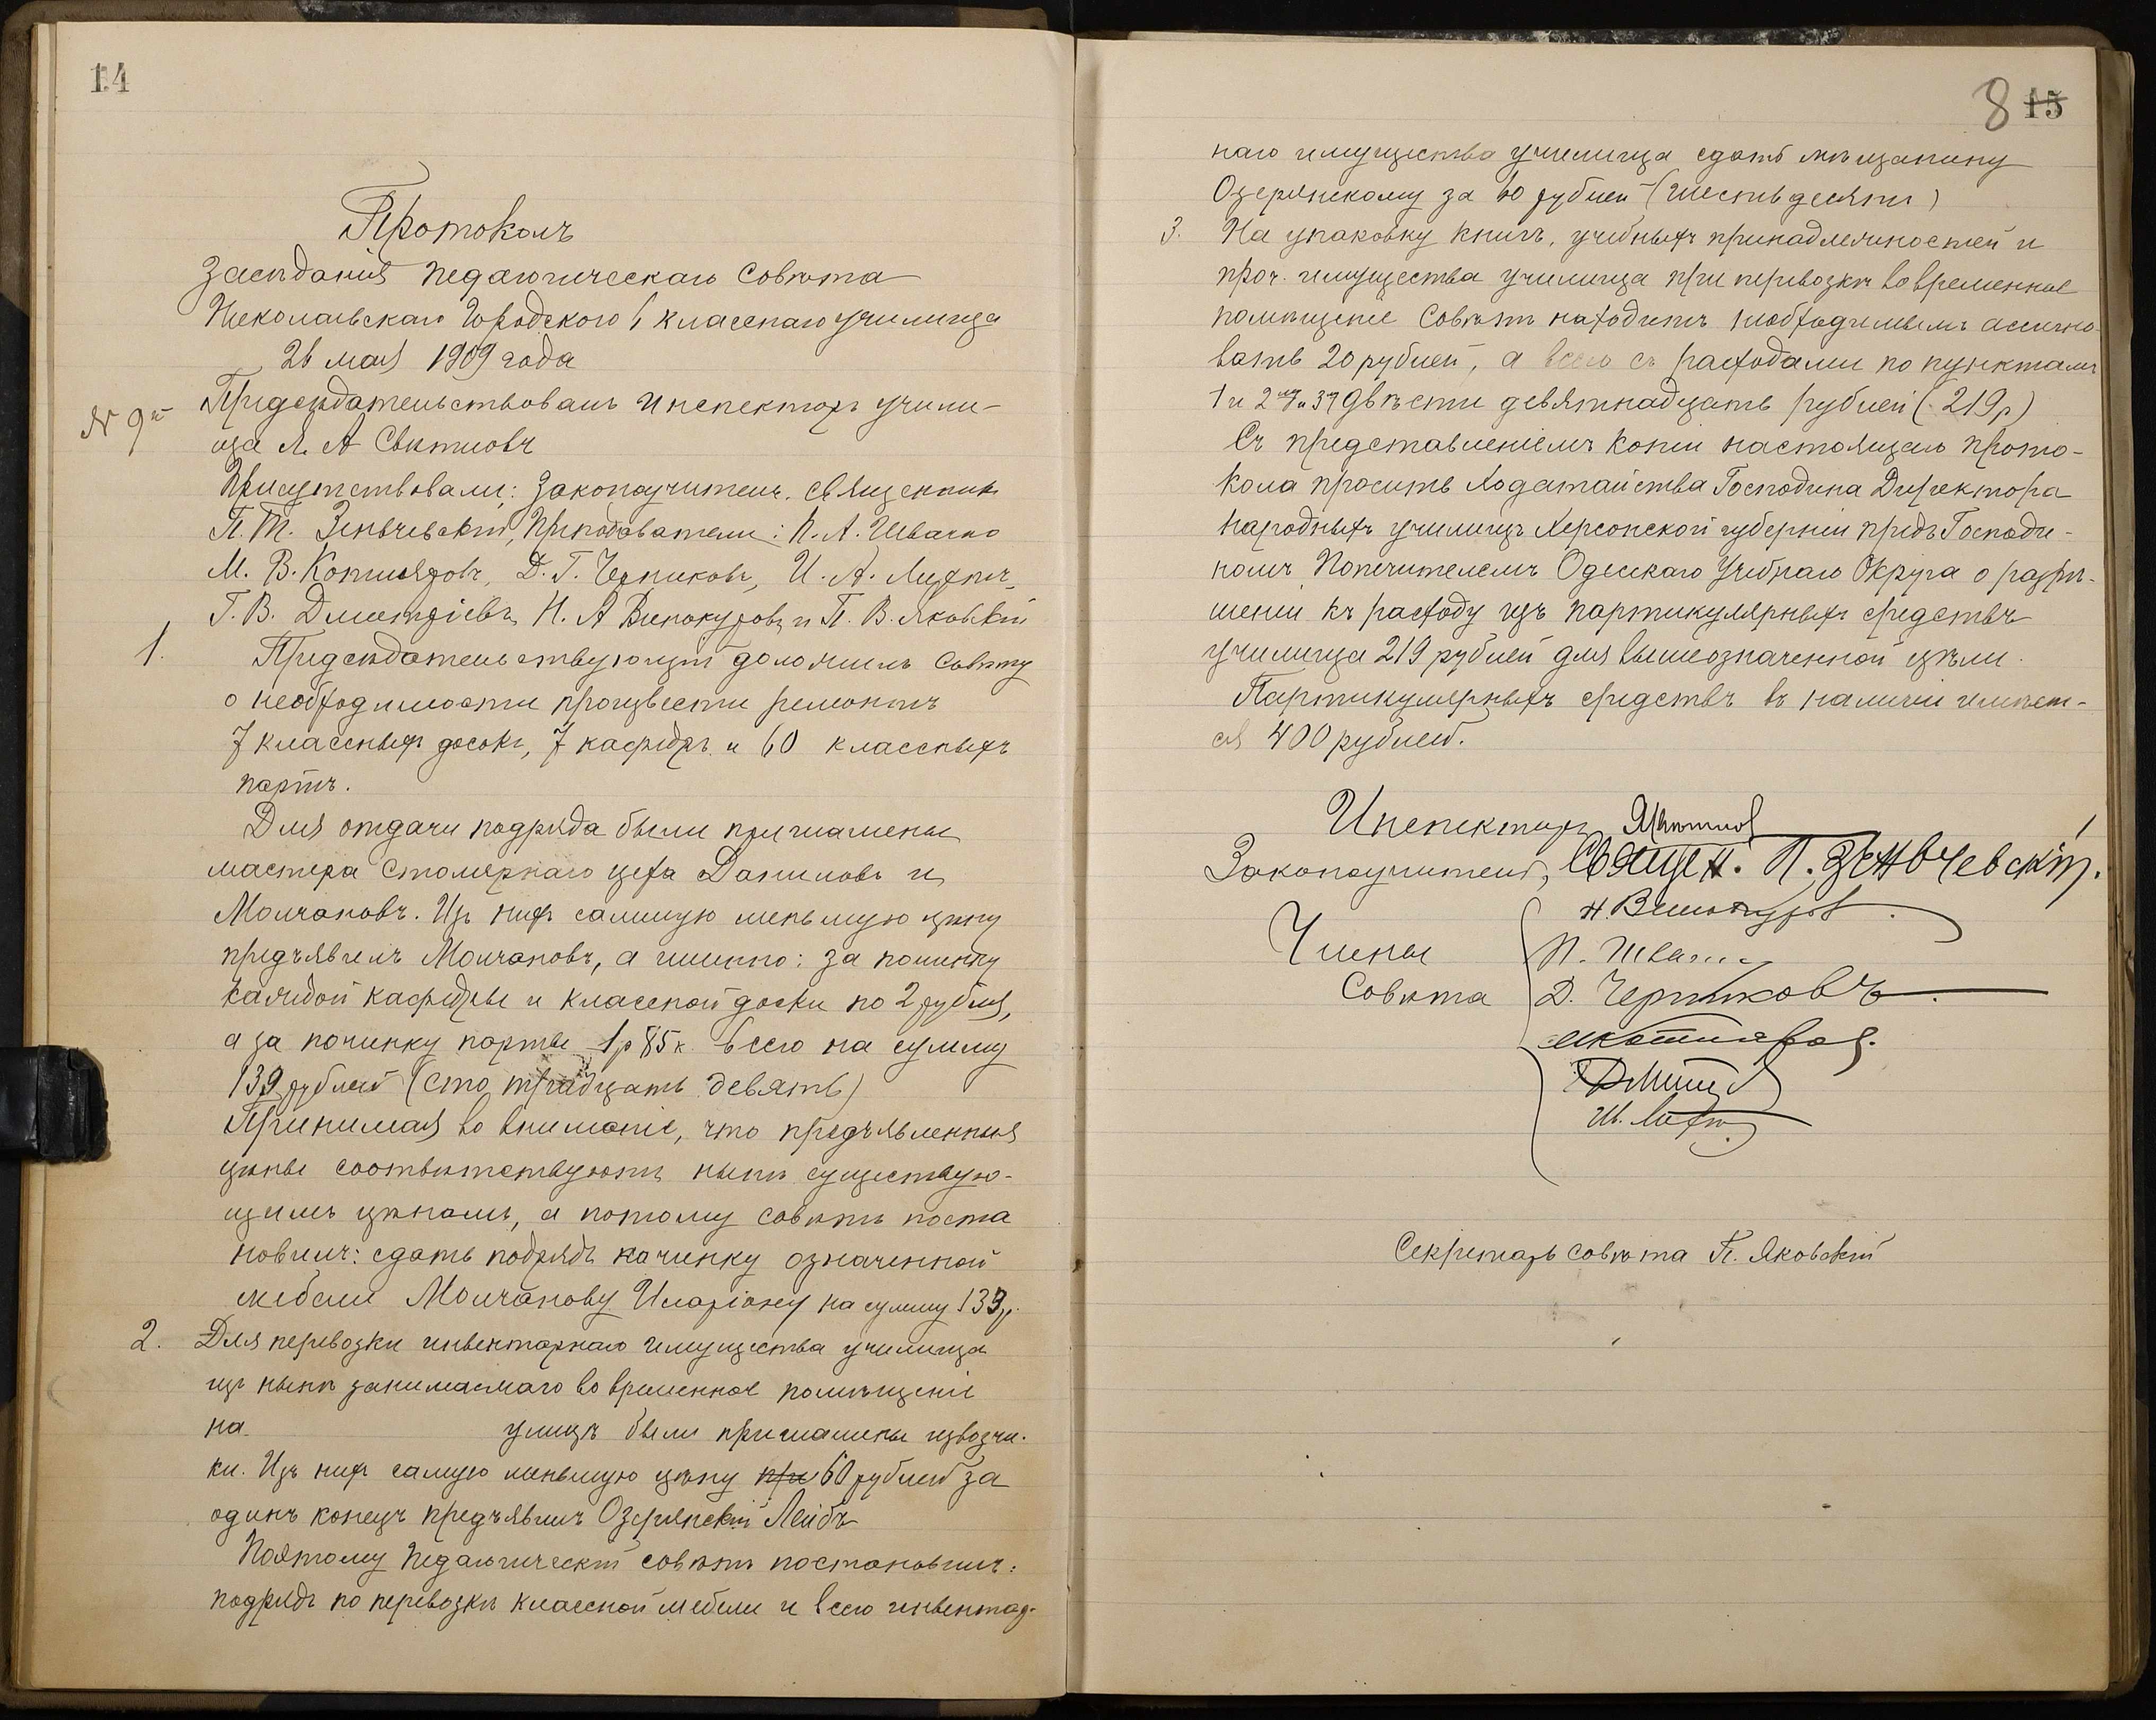 14
Протоколъ
Засѣданія Педагогическаго Совѣта
Николаевскаго Городского 6 класснаго училища
26 мая 1909 года
№ 9й
Предсѣдательствовалъ Инспекторъ учили-
ща Я. А Свѣтловъ
Присутствовали: Законоучитель. священникъ
П. Т. Зеньчевскій, Преподаватели: П. А. Швачко
М. В. Котляровъ, Д. Г. Черниковъ, И. А.
Г. В. Дмитріевъ, Н. А Винокуровъ и П. В. Яковскій
1.
Предсѣдательствующій доложилъ Совѣту
о необходимости произвести ремонтъ
7 классныхъ досокъ, 7 кафедръ и 60 классныхъ
партъ.
Для отдачи подряда были приглашены
мастера столярнаго цеха Даниловъ и
Молчановъ. Изъ нихъ самимую меньшую цѣну
предъявилъ Молчановъ, а именно: за починку
каждой кафедры и классной доски по 2 рубля,
а за починку парты 1р 85к. всего на сумму
139 рублей (сто тридцать девять)
Принимая во вниманіе, что предъявленныя
цѣны соотвѣтствуютъ нынѣ существую-
щимъ цѣнамъ, а потому совѣтъ поста
новилъ: сдать подрядъ починку означенной
мебели Молчанову Иларіону на сумму 139р.
2. Для перевозки инвентарнаго имущества училища
изъ нынѣ занимаемаго во временное помѣщеніе
на улицѣ были приглашены извозчи-
ки. Изъ нихъ самую меньшую цѣну при 60 рублей за
одинъ конецъ предъявилъ Озерянскій Лейбъ
Поэтому Педагогическій совѣтъ постановилъ:
подрядъ по перевозкѣ классной мебели и всего инвентар-
8 15
наго имущества училища сдать мѣщанину
Озерянскому за 60 рублей (шестьдесятъ)
3. На упаковку книгъ, учебныхъ принадлежностей и
проч. имущества училища при перевозкѣ во временное
помѣщеніе Совѣтъ находитъ необходимымъ ассигно-
вать 20 рублей, а всего съ расходами по пунктамъ
1 и 2 му и 3 му двѣсти девятнадцать рублей (219р)
Съ представленіемъ копіи настоящаго прото-
кола просить ходатайства Господина Директора
народныхъ училищъ Херсонской губерніи предъ Господи-
номъ Попечителемъ Одесскаго Учебнаго Округа о разрѣ-
шеніи къ расходу изъ партикулярныхъ средствъ
училища 219 рублей для вышеозначенной цѣли.
Партикулярныхъ средствъ въ наличіи имѣет-
ся 400 рублей.
Инспекторъ ЯСвѣтлов
Законоучитель, Священ. П. Зеньчевскій.
Члены
Совѣта
Н. Винокуров.
П. Швачко
Д. Черниковъ
МКотляров.
ГДмит
Секретарь совѣта П. Яковскій